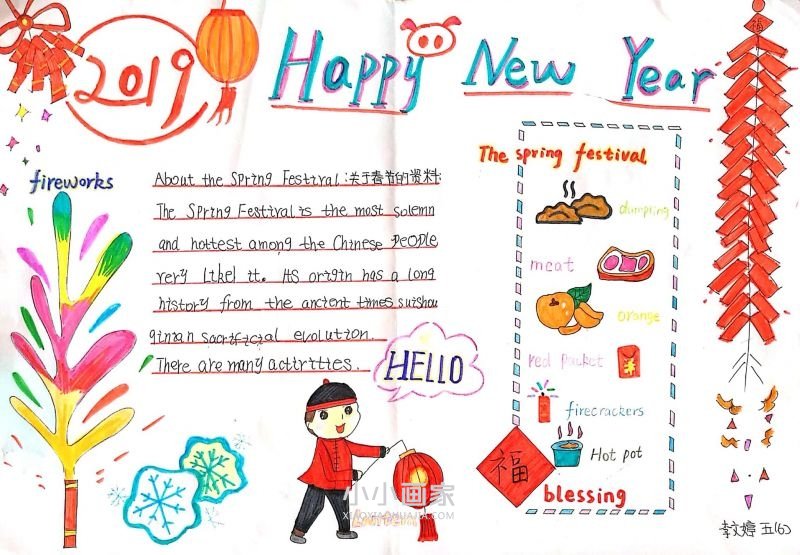 2019
Happy New Year
福
fireworks
About the Spring Festival:关于春节的资料:
The Spring Festival is the most solemn
and hottest among the Chinese people
very likel it. Hs origin has a long
history from the ancient times suishou
ginian sacrificial evolution.
There are many activities.
HELLO
The spring festival
dumpling
meat
orange
red packet
firecrackers
Hot pot
福
blessing
小小画家
XIAOXIAOHUAJIA.COM
李文婷 五(6)